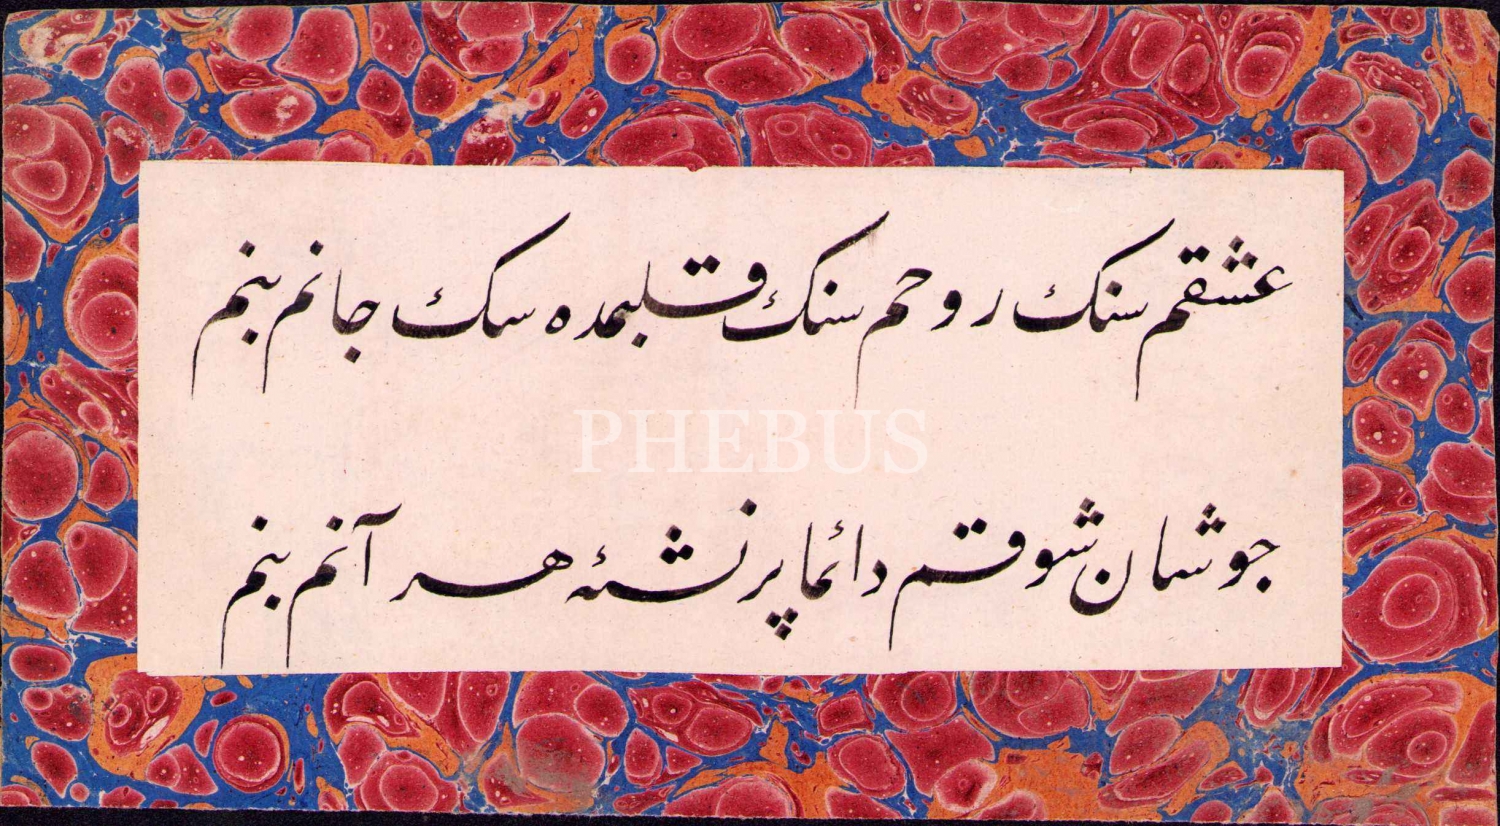 عشقم سنك روحم سنك قلبمده سك جانم بنم
PHEBUS
جوشان شوقم دائما پر نشئه هر آنم بنم